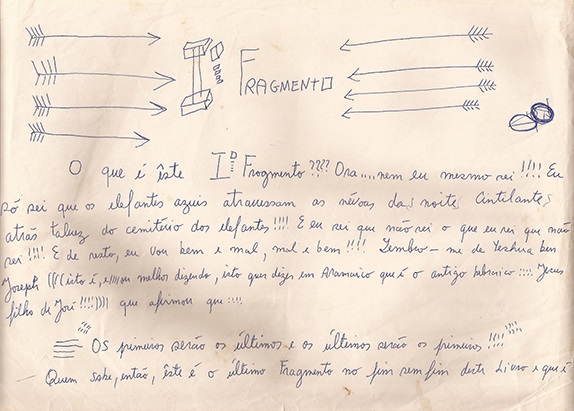 I° FRAGMENTO
O que é êste I° Fragmento???? Ora....nem eu mesmo sei!!!! Eu
só sei que os elefantes azuis atravessam as névoas das noites cintilantes
atrás talvez do cemitério dos elefantes!!!! E eu sei que não sei o que eu sei que não
sei!!!! E de resto, eu vou bem e mal, mal e bem!!!! Lembro-me de Yeshua ben
Joseph ((((isto é, e/ou melhor dizendo, isto quer dizer em Aramaico que é o antigo hebraico :::: Jesus
filho de José!!!!)))) que afirmou que ::::
"" Os primeiros serão os últimos e os últimos serão os primeiros!!!! ""
Quem sabe, então, êste é o último Fragmento no fim sem fim deste Livro e que é